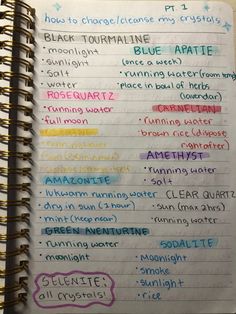 PT. 1
how to charge/cleanse my crystals
BLACK TOURMALINE
• moonlight
• sunlight
• salt
• water
BLUE APATIE
(once a week)
• running water (room temp)
• place in bowl of herbs
(lavendar)
ROSEQUARTZ
• running water
• full moon
CARNELIAN
• running water
brown rice (dispose
right after)
AMETHYST
• running water
• salt
AMAZONITE
• lukwarm running water
• dry in sun (1 hour)
• mint (keep near)
CLEAR QUARTZ
• sun (max 2hrs)
• running water
GREEN AVENTURINE
• running water
• moonlight
SODALITE
• moonlight
• smoke
• sunlight
• rice
SELENITE:
all crystals!